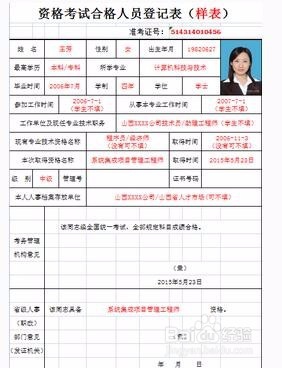 资格考试合格人员登记表（样表）
准考证号：514314010456
姓 名 王芬 性别 女 出生年月 19820627
最高学历 本科/专科 所学专业 计算机科技与技术
毕业时间 2006年7月 学制 四年 学位 学士
参加工作时间 2006-7-1（学生不填） 从事本专业工作时间 2007-7-1（学生不填）
工作单位及现任专业技术职务 山西XXXX公司技术员/助理工程师（学生不填）
现有专业技术资格名称 程序员/经济师（没有可不填） 取得时间 2006-11-3（没有可不填）
本次取得资格名称 系统集成项目管理工程师 取得时间 2015年5月23日
级 别 中级 管理号 证书号码
本人人事档案存放单位 山西XXXX公司/山西省人才市场(可不填)
该同志经全国统一考试、全部规定科目成绩合格。
考务管理机构意见
（章）
2015年5月23日
省级人事（职改）部门意见（发证机关）
该同志具备 系统集成项目管理工程师 资格。
2015年5月23日